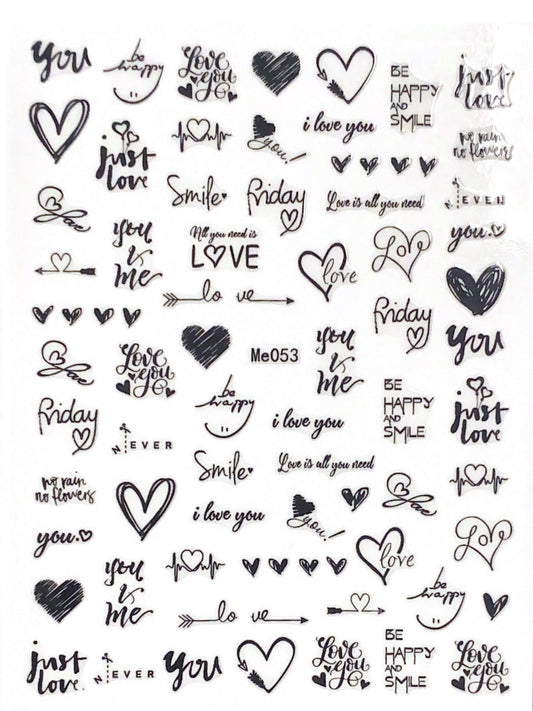 you
be
happy
Love
you
BE
HAPPY
AND
SMILE
just
love
just
love
you!
i love you
no rain
no flowers
Smile
Friday
Love is all you need
NEVER
you
is
me
All you need is
LOVE
love
Love
you
lo ve
Friday
you
Love
you
Me053
you
is
me
be
happy
BE
HAPPY
AND
SMILE
just
love
Friday
NEVER
i love you
Smile
Love is all you need
no rain
no flowers
i love you
you!
you
you
is
me
love
Love
lo ve
be
happy
just
love
NEVER
you
Love
you
BE
HAPPY
AND
SMILE
Love
you